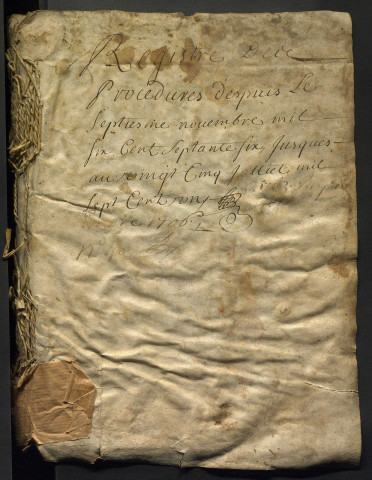 Registre De
Procedures despuis Le
Septiesme novembre mil
six Cent Septante six Jusques
au vingt Cinq Juillet mil
Sept Cent
1706